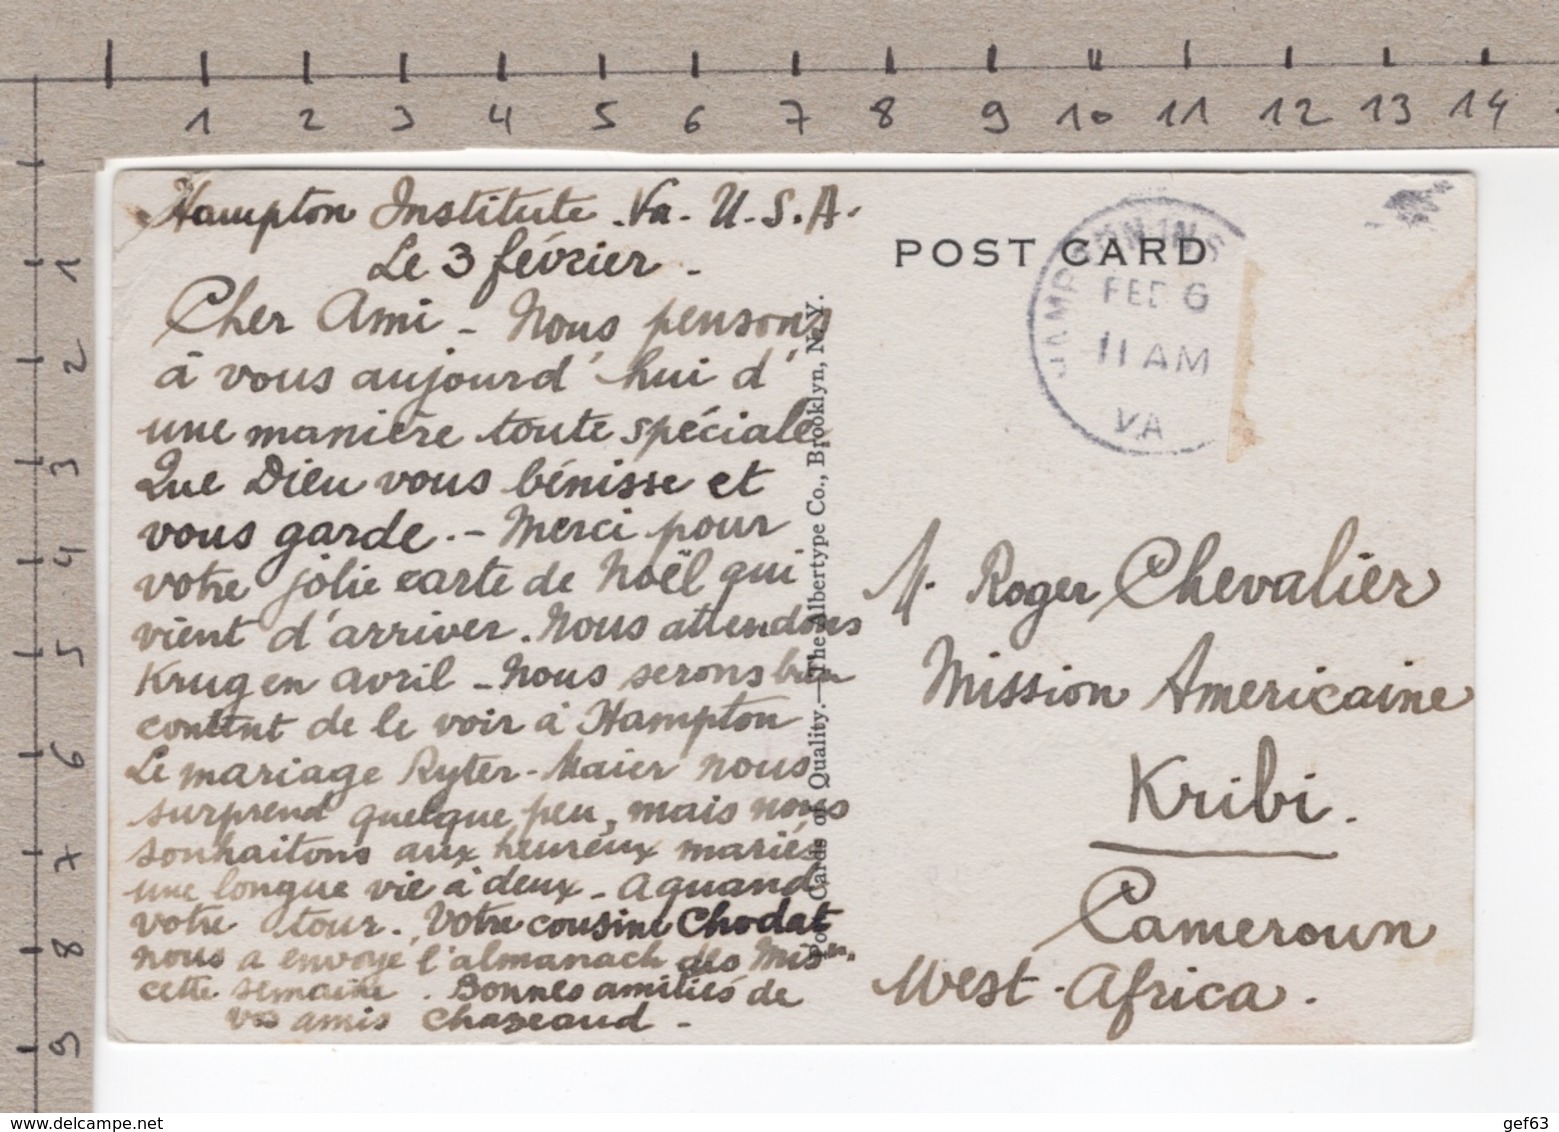 1 2 3 4 5 6 7 8 9 10 11 12 13 14
1
2
3
4
5
6
7
8
9
Hampton Institute. Va. U.S.A.
Le 3 février.
Cher Ami - Nous pensons
à vous aujourd'hui d'
une manière toute spéciale
Que Dieu vous bénisse et
vous garde. - Merci pour
votre jolie carte de Noël qui
vient d'arriver. Nous attendons
Krug en avril - Nous serons bien
content de le voir à Hampton
Le mariage Ryter-Maier nous
surprend quelque peu, mais nous
souhaitons aux heureux mariés
une longue vie à deux - A quand
votre tour. Votre cousine Chodat
nous a envoyé l'almanach des Miss
cette semaine. Bonnes amitiés de
vos amis Chazeaud -
Post Cards of Quality.—The Albertype Co., Brooklyn, N. Y.
POST CARD
HAMPTON INS
FEB 6
11 AM
VA
M. Roger Chevalier
Mission Americaine
Kribi.
Cameroun
West-Africa.
delcampe.net
gef63